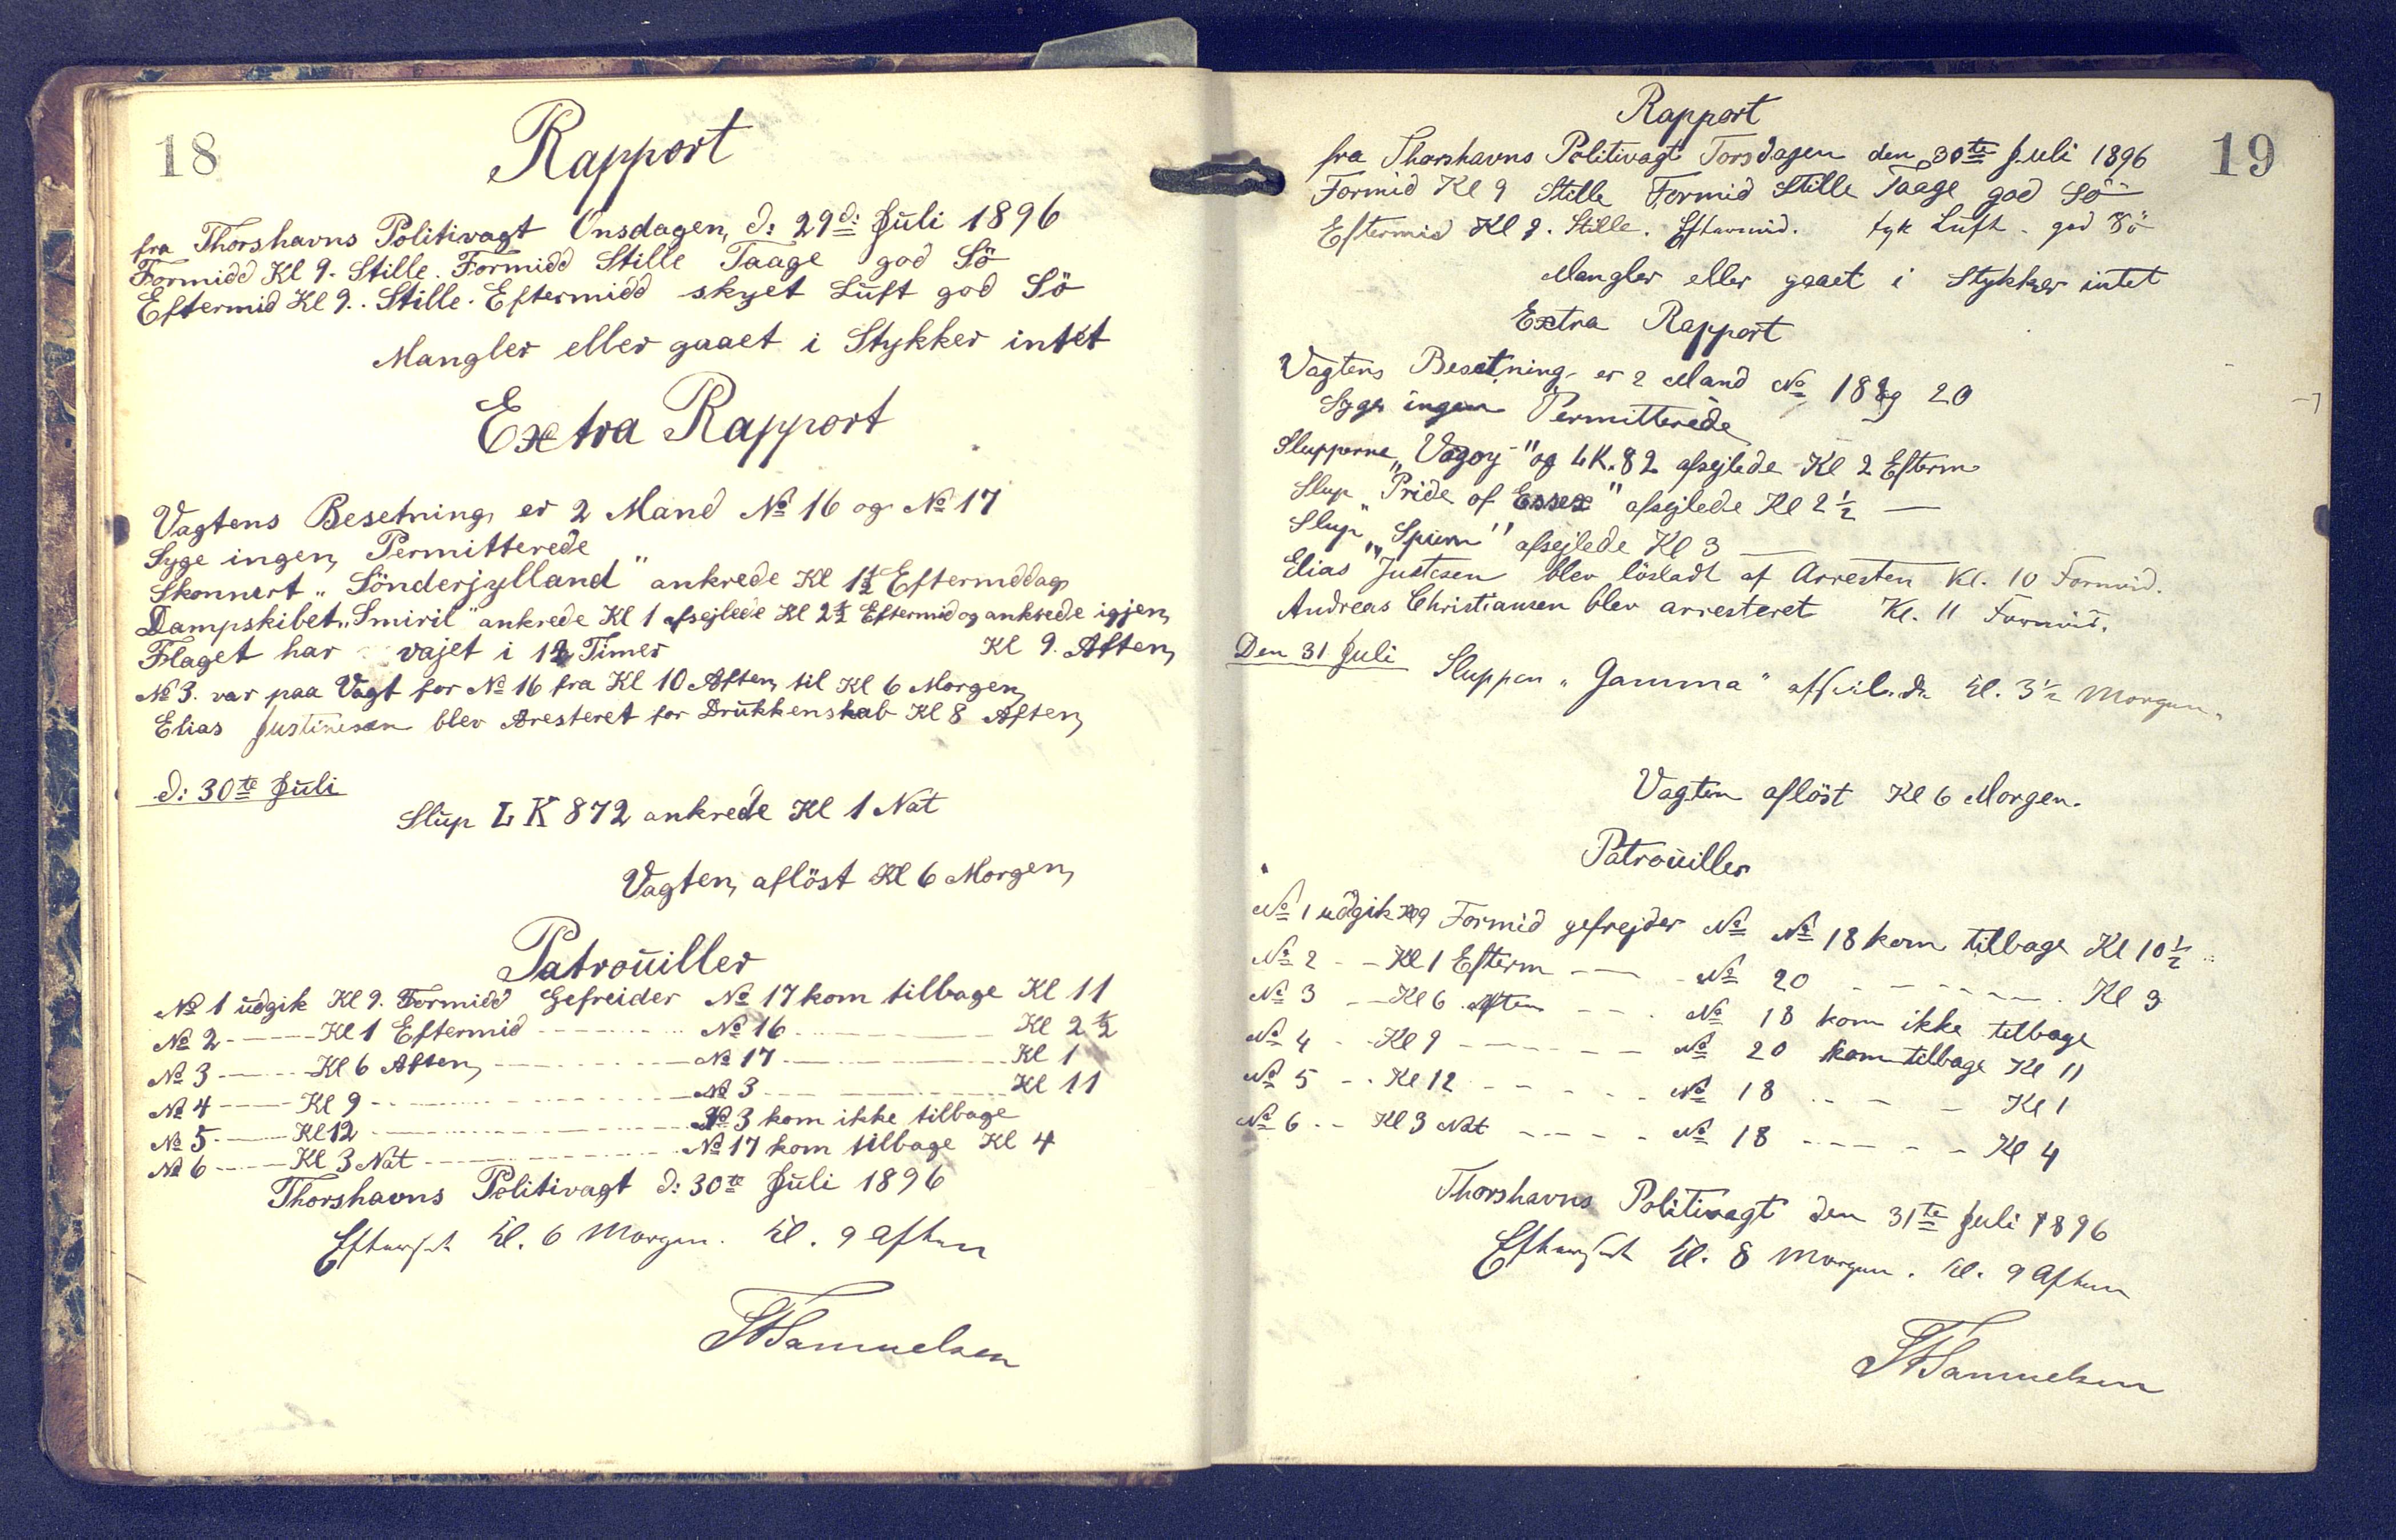 18
Rapport
fra Thorshavns Politivagt Onsdagen, d: 29d: Juli 1896
Formidd Kl 9. Stille. Formidd Stille Taage god Sö
Eftermid Kl 9. Stille. Eftermidd skyet Luft god Sö
Mangler eller gaaet i Stykker intet
Extra Rapport
Vagtens Besetning er 2 Mand No 16 og No 17
Syge ingen, Permitterede
Skonnert „Sönderjylland" ankrede Kl 1½ Eftermddag
Dampskibet „Smiril" ankrede Kl 1 afsejlede Kl 2½ Eftermid og ankrede igjen,
Kl 9. Aften,
Flaget har vajet i 12 Timer
No 3. var paa Vagt for No 16 fra Kl 10 Aften, til Kl 6 Morgen,
Elias Justinesen blev Aresteret for Drukkenskab Kl 8 Aften,
d: 30te Juli
Slup LK 872 ankrede Kl 1 Nat
Vagten, aflöst Kl 6 Morgen,
Patrouiller
No 1 udgik Kl 9. Formidd Gefreider No 17 kom tilbage Kl 11
No 2 - - - Kl 1 Eftermid - - - No 16 - - - Kl 2½
No 3 - - - Kl 6 Aften, - - - No 17 - - - Kl 1
No 4 - - - Kl 9 - - - No 3 - - - Kl 11
No 5 - - - Kl 12 - - - No 3 kom ikke tilbage
No 6 - - - Kl 3 Nat - - - No 17 kom tilbage Kl 4
Thorshavns Politivagt d: 30te Juli 1896
Efterset Kl. 6 Morgen. Kl. 9 Aften
Samuelsen
19
Rapport
fra Thorshavns Politivagt Torsdagen den 30te Juli 1896
Formid Kl 9 Stille Formid Stille Taage god Sö
Eftermid Kl 9. Stille. Eftermid. tyk Luft. god Sö
Mangler eller gaaet i Stykker intet
Extra Rapport
Vagtens Besetning er 2 Mand No 18 og 20
Syge ingen Permitterede
Slupperne „Vagoy" og LK. 82 afsejlede Kl 2 Efterm
Slup „Pride of Essex" afsejlede Kl 2½ —
Slup „Spurn" afsejlede Kl 3 —
Elias Justesen blev lösladt af Arresten Kl. 10 Formid.
Andreas Christiansen blev arresteret Kl. 11 Formid.
Den 31 Juli Sluppen „Gamma" afseilede Kl. 3½ Morgen.
Vagten aflöst Kl 6 Morgen.
Patrouiller
No 1 udgik Kl 9 Formid gefrejder No No 18 kom tilbage Kl 10½
No 2 - - Kl 1 Efterm - - - No 20 - - - Kl 3
No 3 - - Kl 6 Aften - - - No 18 kom ikke tilbage
No 4 - - Kl 9 - - - No 20 kom tilbage Kl 11
No 5 - - Kl 12 - - - No 18 - - - Kl 1
No 6 - - Kl 3 Nat - - - No 18 - - - Kl 4
Thorshavns Politivagt den 31te Juli 1896
Efterset Kl. 8 Morgen. Kl. 9 Aften
Samuelsen